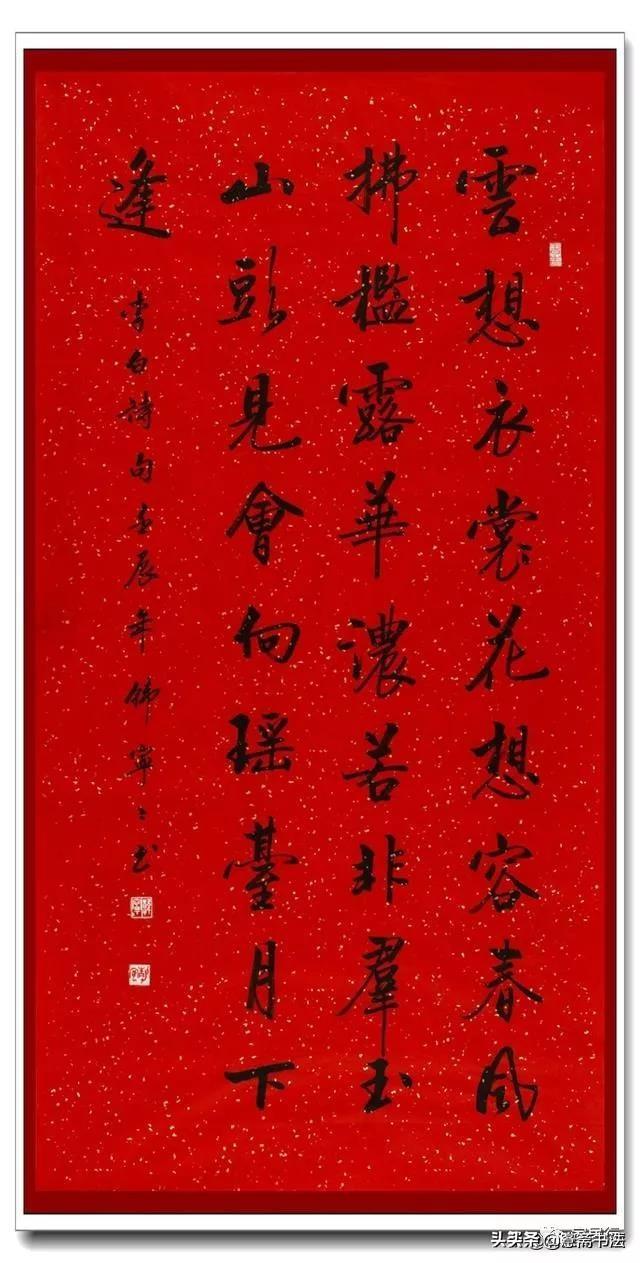 雲想衣裳花想容春風
拂檻露華濃若非羣玉
山頭見會向瑶臺月下
逢
李白詩句壬辰年韩寧〻书